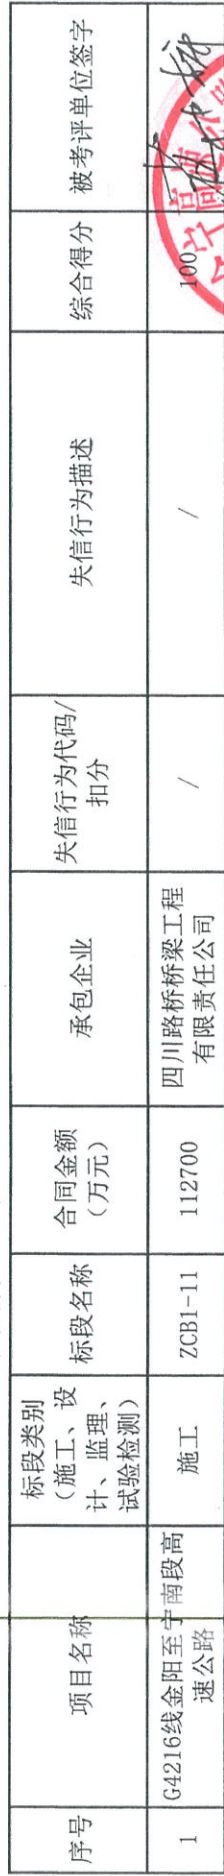 序号
项目名称
标段类别
（施工、设
计、监理、
试验检测）
标段名称
合同金额
（万元）
承包企业
失信行为代码/
扣分
失信行为描述
综合得分
被考评单位签字
1
G4216线金阳至宁南段高
速公路
施工
ZCB1-11
112700
四川路桥桥梁工程
有限责任公司
/
/
100